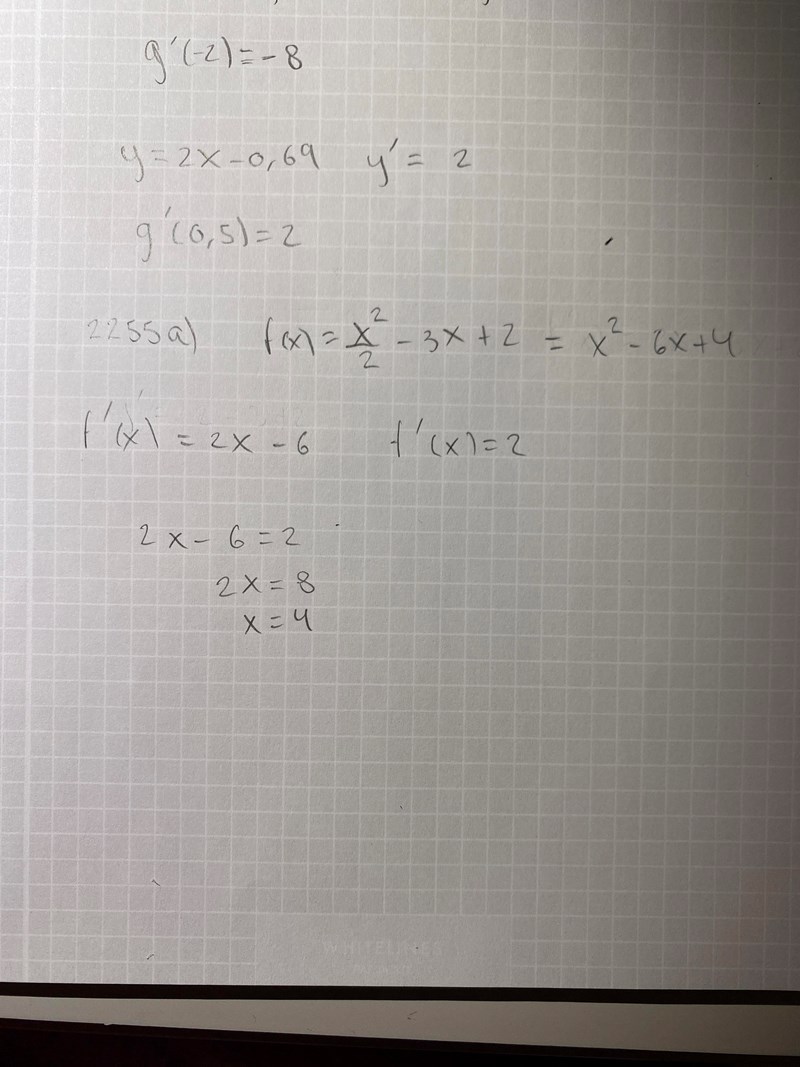 g'(-2)=-8
y=2x-0,69 y'= 2
g'(0,5)=2
2255a) f(x)=x²/2 -3x+2 = x²-6x+4
f'(x) = 2x-6 f'(x)=2
2x-6=2
2x=8
x=4
WHITELINES